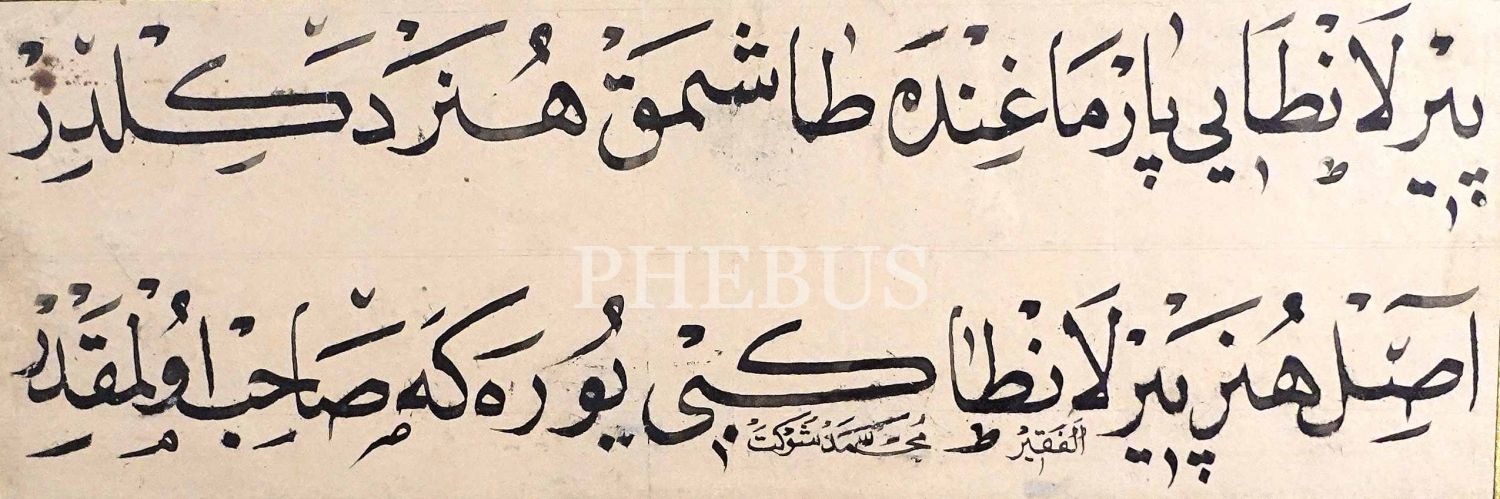 پیرلانطایی پارماغنده طاشمق هنر دکلدر
PHEBUS
اصل هنر پیرلانطا کبی یوره که صاحب اولمقدر
الفقیر محمد شوکت